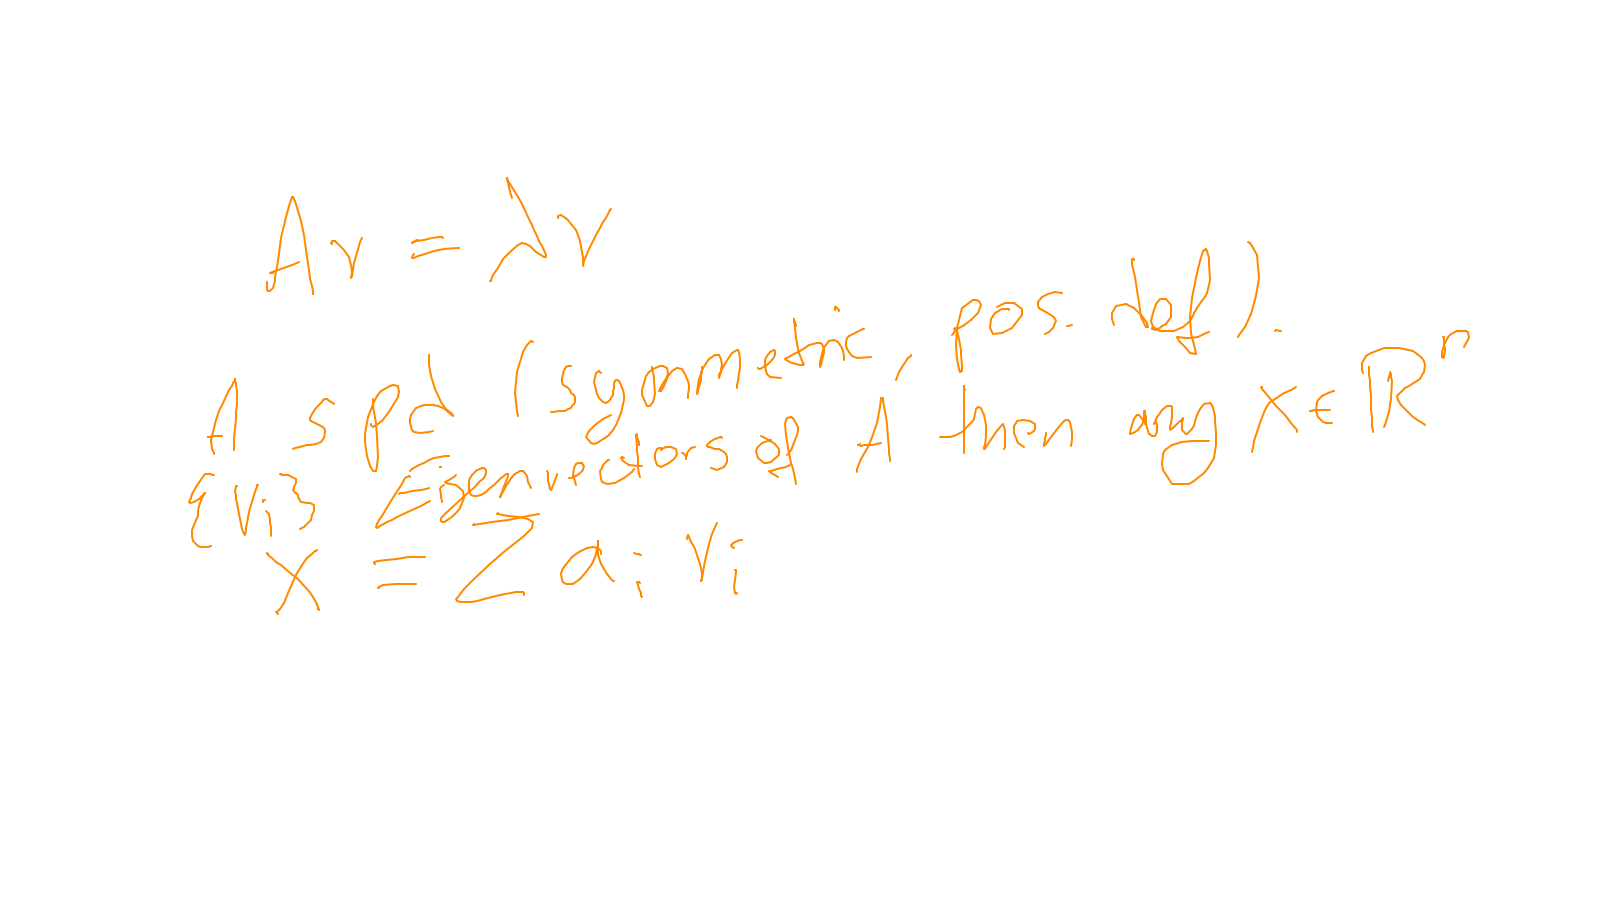 Av = λv
A spd (symmetric, pos. def).
{vi} Eigenvectors of A then any x ∈ ℝⁿ
x = Σ ai vi